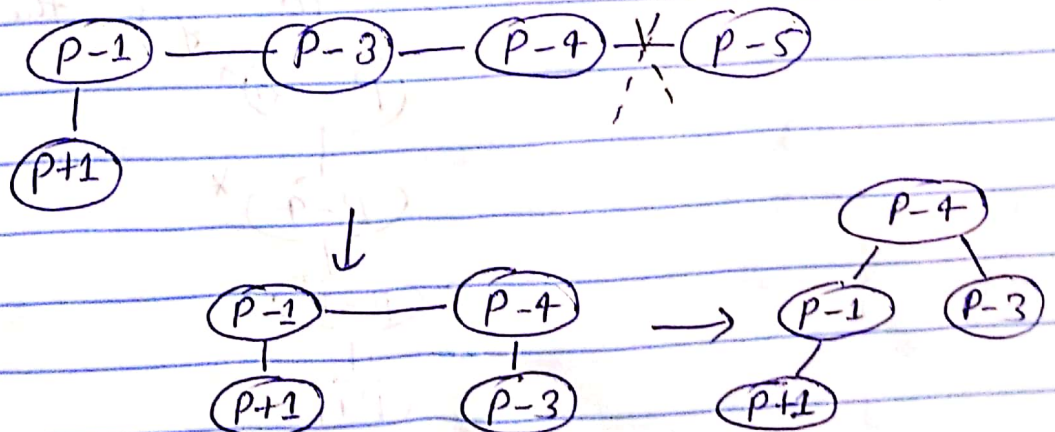 P-1 P-3 P-4 P-5
P+1
P-4
P-1 P-4 P-1 P-3
P+1 P-3 P+1